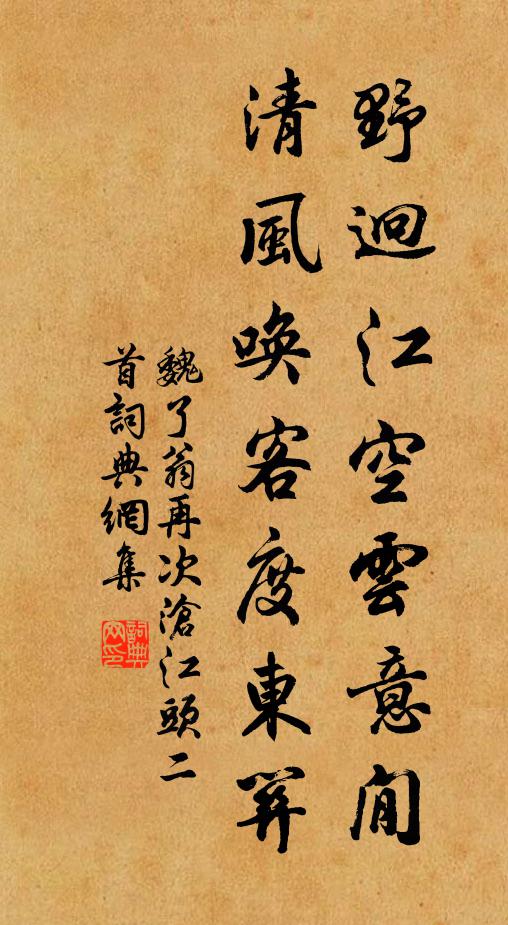 野迥江空雲意閒
清風喚客度東關
魏了翁再次滄江頭二
首詞典網集
詞典網印